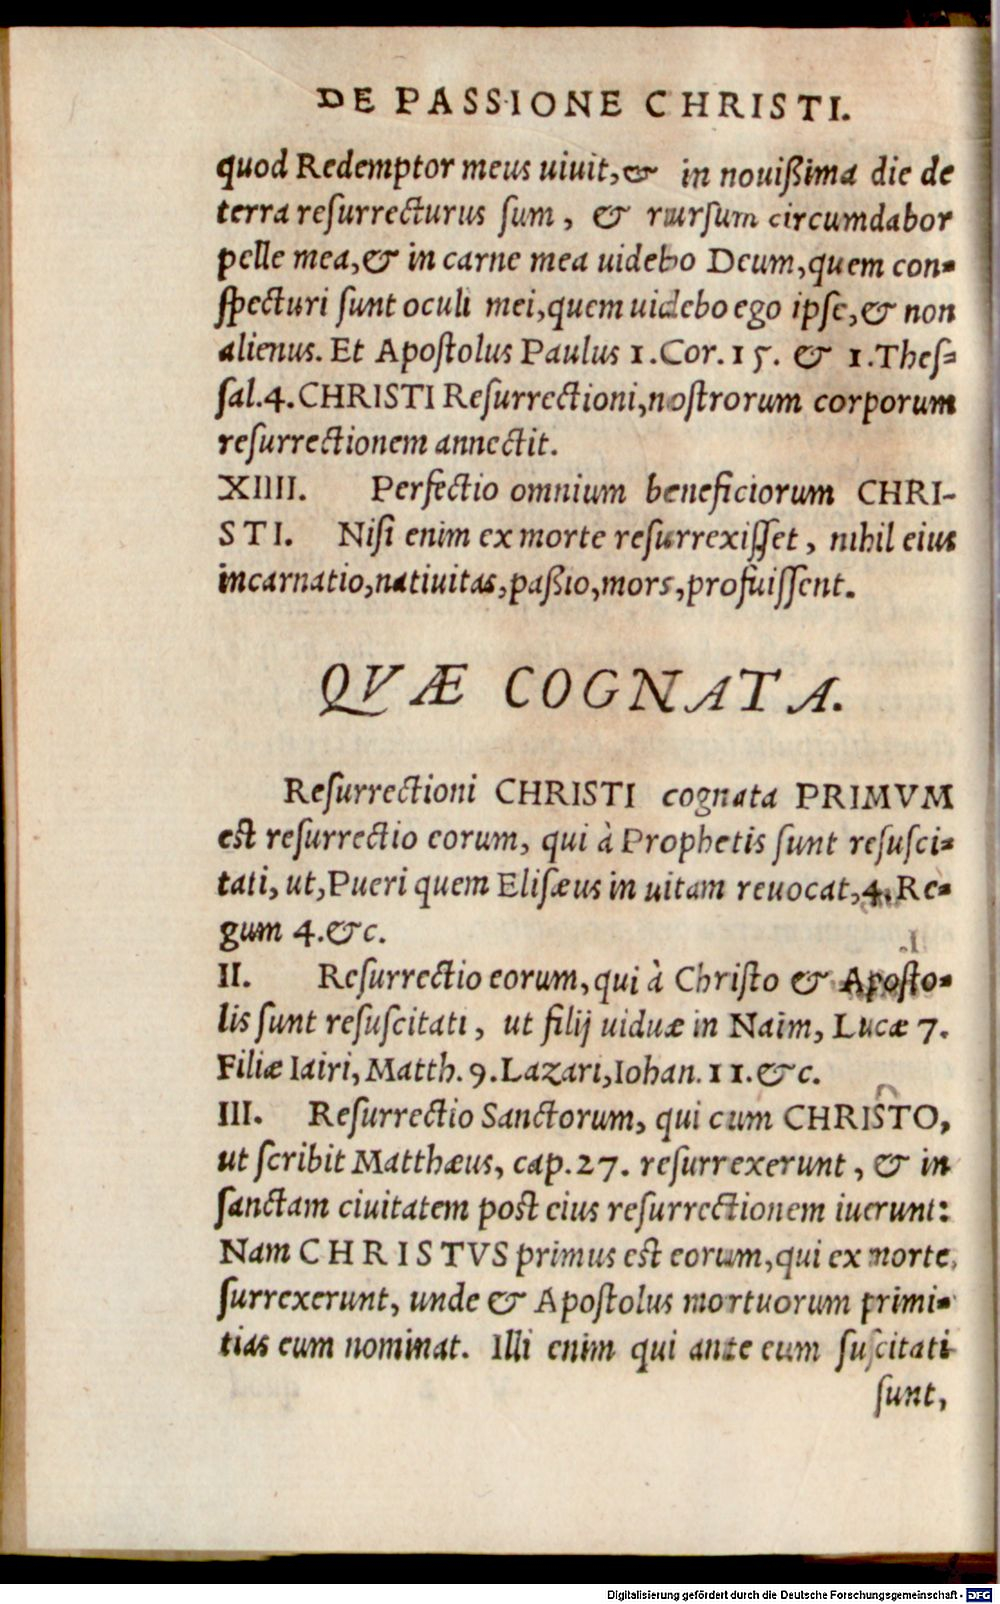 DE PASSIONE CHRISTI.
quod Redemptor meus uiuit, & in nouißima die de
terra resurrecturus sum, & rursum circumdabor
pelle mea, & in carne mea uidebo Deum, quem con-
specturi sunt oculi mei, quem uidebo ego ipse, & non
alienus. Et Apostolus Paulus 1. Cor. 15. & 1. Thes-
sal. 4. CHRISTI Resurrectioni, nostrorum corporum
resurrectionem annectit.
XIIII. Perfectio omnium beneficiorum CHRI-
STI. Nisi enim ex morte resurrexisset, nihil eius
incarnatio, natiuitas, paßio, mors, profuissent.
QVÆ COGNATA.
Resurrectioni CHRISTI cognata PRIMVM
est resurrectio eorum, qui à Prophetis sunt resusci-
tati, ut, Pueri quem Elisæus in uitam reuocat, 4. Re-
gum 4. &c.
II. Resurrectio eorum, qui à Christo & Aposto-
lis sunt resuscitati, ut filij uiduæ in Naim, Lucæ 7.
Filiæ Iairi, Matth. 9. Lazari, Iohan. 11. &c.
III. Resurrectio Sanctorum, qui cum CHRISTO,
ut scribit Matthæus, cap. 27. resurrexerunt, & in
sanctam ciuitatem post eius resurrectionem iuerunt:
Nam CHRISTVS primus est eorum, qui ex morte,
surrexerunt, unde & Apostolus mortuorum primi-
tias eum nominat. Illi enim qui ante eum suscitati
sunt,
Digitalisierung gefördert durch die Deutsche Forschungsgemeinschaft - DFG